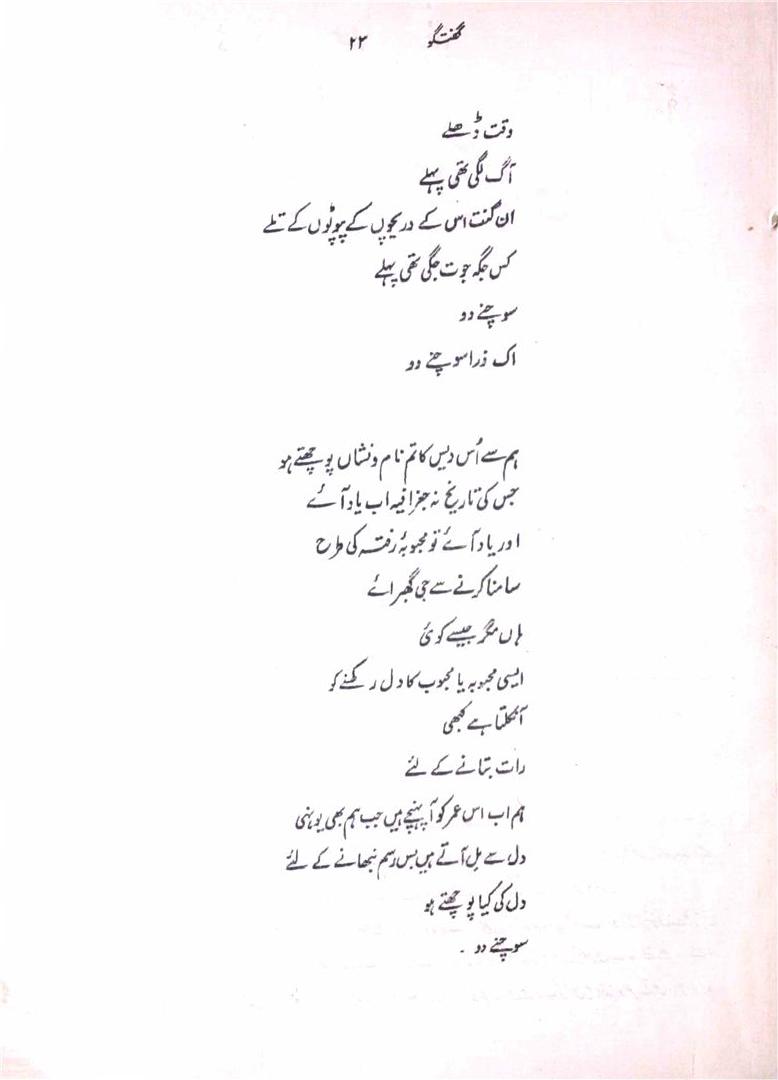 گفتگو ۲۳
وقت ڈھلے
آگ لگی تھی پہلے
ان گنت اس کے دریچوں کے پپوٹوں کے تلے
کس جگہ جوت جگی تھی پہلے
سوچنے دو
اک ذرا سوچنے دو
ہم سے اُس دیس کا تم نام و نشاں پوچھتے ہو
جس کی تاریخ نہ جغرافیہ اب یاد آئے
اور یاد آئے تو محبوبۂ رفتہ کی طرح
سامنا کرنے سے جی گھبرائے
ہاں مگر جیسے کوئی
ایسی محبوبہ یا محبوب کا دل رکھنے کو
آنکلتا ہے کبھی
رات بتانے کے لئے
ہم اب اس عمر کو آ پہنچے ہیں جب ہم بھی یونہی
دل سے مل آتے ہیں بس رسم نبھانے کے لئے
دل کی کیا پوچھتے ہو
سوچنے دو ۔